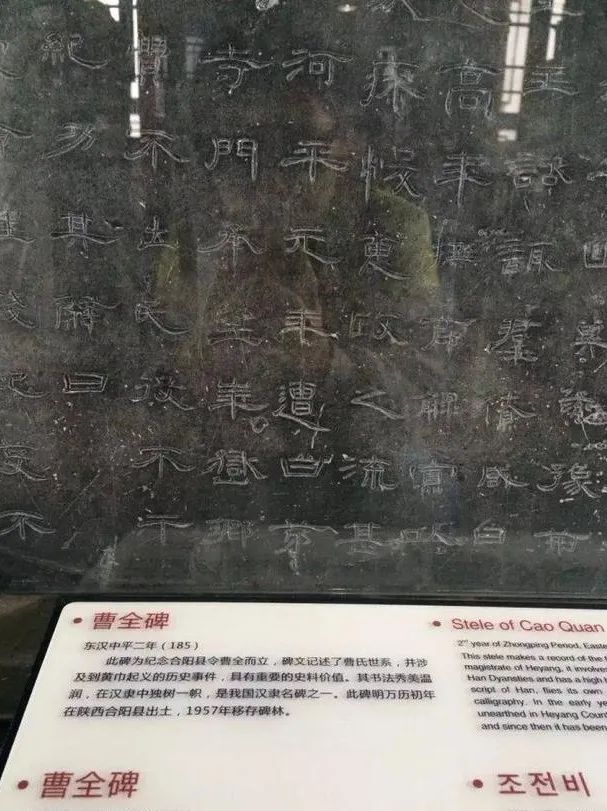 幽冀兗豫荊
主諮諏群僚咸曰
高年撫育鰥寡以
瘳悛惠政之流甚
河平元年遭白茅
寺門承望華嶽鄉
費不出民役不干
紀功其辭曰
• 曹全碑
东汉中平二年（185）
此碑为纪念合阳县令曹全而立，碑文记述了曹氏世系，并涉
及到黄巾起义的历史事件，具有重要的史料价值。其书法秀美温
润，在汉隶中独树一帜，是我国汉隶名碑之一。此碑明万历初年
在陕西合阳县出土，1957年移存碑林。
• Stele of Cao Quan
2nd year of Zhongping Period, Easte
This stele makes a record of the
magistrate of Heyang, it involves
Han Dynasties and has a high
script of Han, flies its own
calligraphy. In the early ye
unearthed in Heyang Count
and since then it has been
• 曹全碑
• 조전비